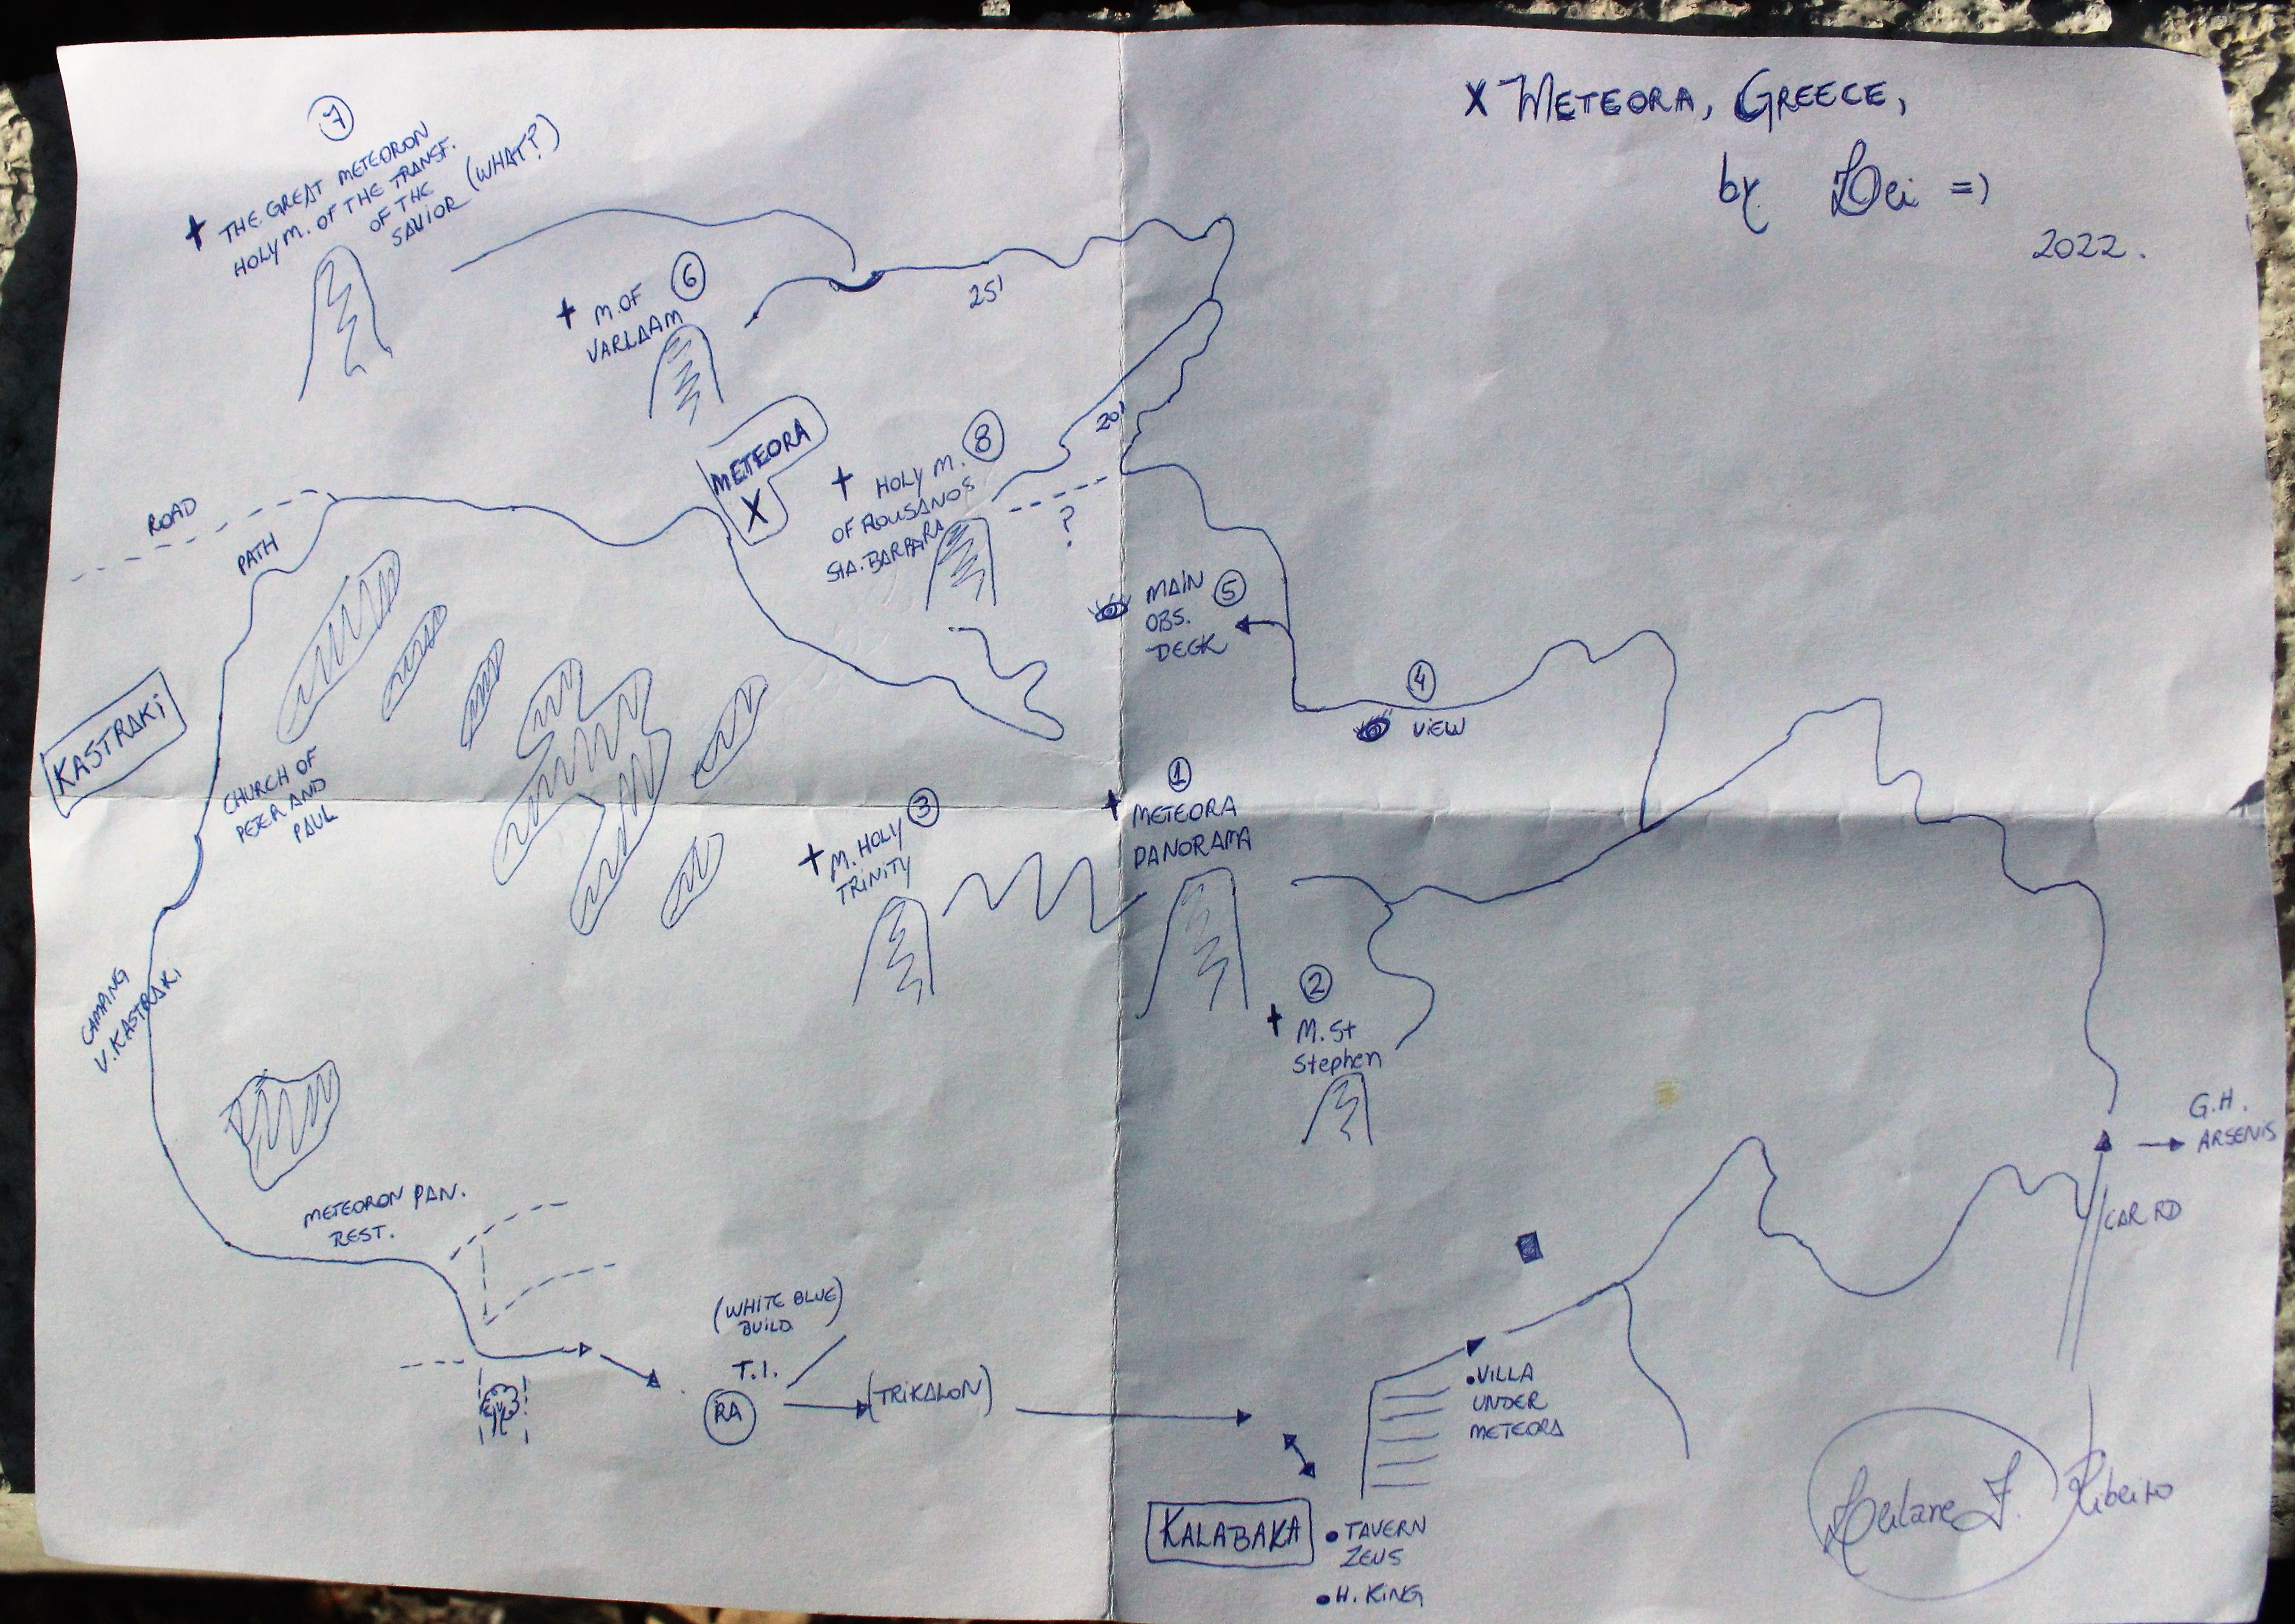 X METEORA, GREECE,
by Lei =)
2022.
7
✝ THE GREAT METEORON
HOLY M. OF THE TRANSF.
OF THE
SAVIOR (WHAT?)
6
✝ M. OF
VARLAAM
25'
METEORA
X
8
✝ HOLY M.
OF ROUSANOS
STA. BARBARA
20'
?
ROAD
PATH
MAIN
OBS.
DECK
5
4
VIEW
KASTRAKI
CHURCH OF
PETER AND
PAUL
3
✝ M. HOLY
TRINITY
1
✝ METEORA
PANORAMA
2
✝ M. St
Stephen
CAMPING
V. KASTRAKI
METEORON PAN.
REST.
G.H.
ARSENIS
CAR RD
(WHITE BLUE)
BUILD.
T.I.
RA
(TRIKALON)
VILLA
UNDER
METEORA
KALABAKA
TAVERN
ZEUS
H. KING
Ribeiro